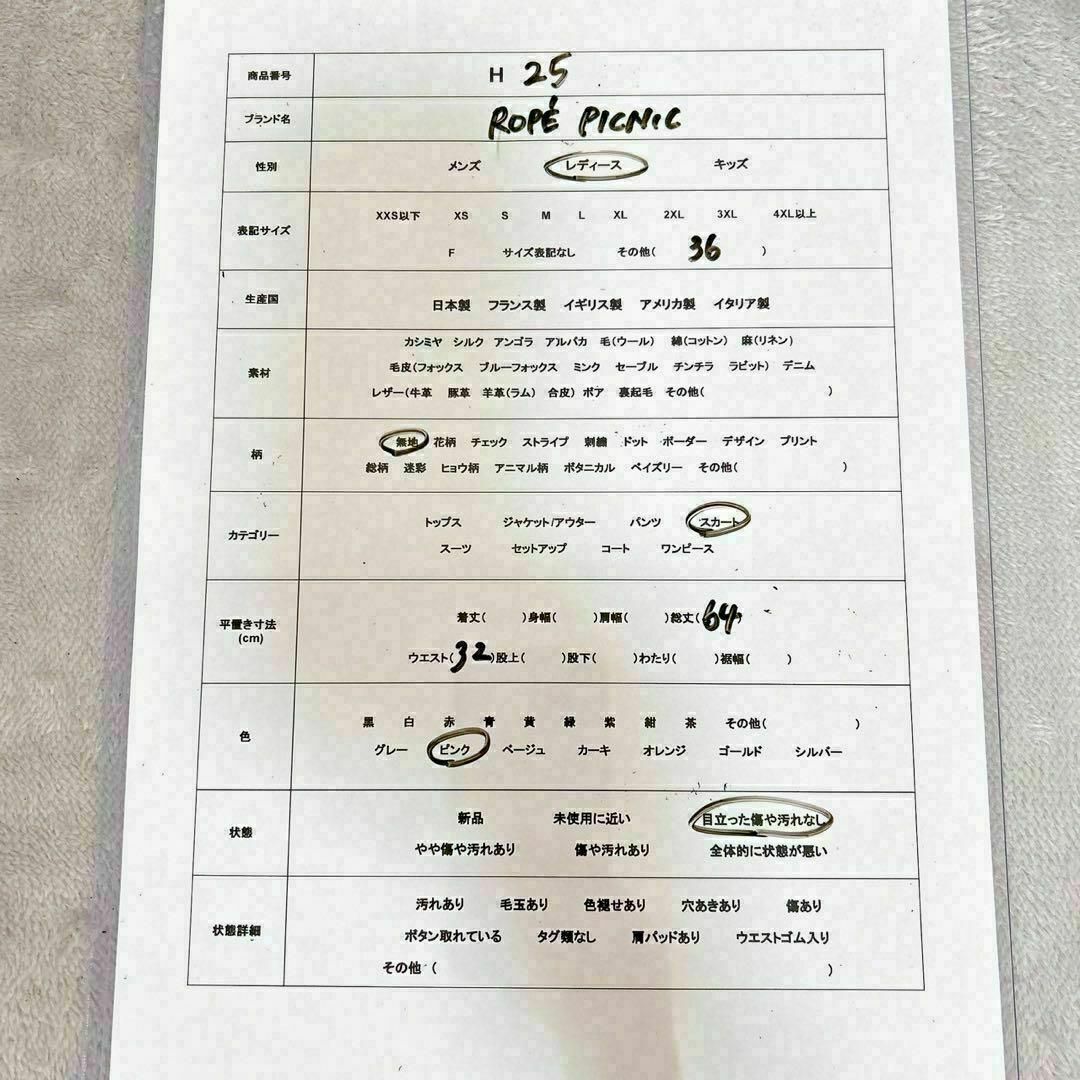 商品番号 H 25
ブランド名 ROPÉ PICNIC
性別 メンズ レディース キッズ
表記サイズ
XXS以下 XS S M L XL 2XL 3XL 4XL以上
F サイズ表記なし その他( 36 )
生産国 日本製 フランス製 イギリス製 アメリカ製 イタリア製
素材
カシミヤ シルク アンゴラ アルパカ 毛(ウール) 綿(コットン) 麻(リネン)
毛皮(フォックス ブルーフォックス ミンク セーブル チンチラ ラビット) デニム
レザー(牛革 豚革 羊革(ラム) 合皮) ボア 裏起毛 その他( )
柄
無地 花柄 チェック ストライプ 刺繍 ドット ボーダー デザイン プリント
総柄 迷彩 ヒョウ柄 アニマル柄 ボタニカル ペイズリー その他( )
カテゴリー
トップス ジャケット/アウター パンツ スカート
スーツ セットアップ コート ワンピース
平置き寸法
(cm)
着丈( )身幅( )肩幅( )総丈( 64 )
ウエスト( 32 )股上( )股下( )わたり( )裾幅( )
色
黒 白 赤 青 黄 緑 紫 紺 茶 その他( )
グレー ピンク ベージュ カーキ オレンジ ゴールド シルバー
状態
新品 未使用に近い 目立った傷や汚れなし
やや傷や汚れあり 傷や汚れあり 全体的に状態が悪い
状態詳細
汚れあり 毛玉あり 色褪せあり 穴あきあり 傷あり
ボタン取れている タグ類なし 肩パッドあり ウエストゴム入り
その他 ( )